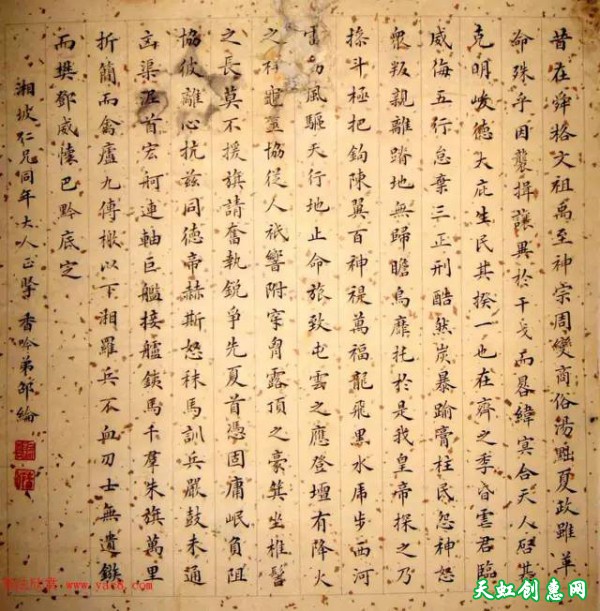 昔在舜格文祖禹至神宗周變商俗湯黜夏政雖革
命殊乎因襲揖讓異於干戈而晷緯冥合天人啓其
克明峻德大庇生民其揆一也在齊之季昏虐君臨
威侮五行怠棄三正刑酷然炭暴踰膏柱民怨神怒
衆叛親離蹐地無歸瞻烏靡托於是我皇帝探之乃
操斗極把鉤陳翼百神禔萬福龍飛黑水虎步西河
雷動風驅天行地止命旅致屯雲之應登壇有降火
之祥龜筮協從人祇響附穿胷露頂之豪箕坐椎髻
之長莫不援旗請奮執銳爭先夏首憑固庸岷負阻
協彼離心抗茲同德帝赫斯怒秣馬訓兵嚴鼓未通
凶渠泥首宏舸連軸巨艦接艫鐵馬千羣朱旗萬里
折簡而禽廬九傳檄以下湘羅兵不血刃士無遺鏃
而樊鄧威懷巴黔底定
湘坡仁兄同年大人正 香吟弟鄒綸
www.yac8.com
天虹创惠网